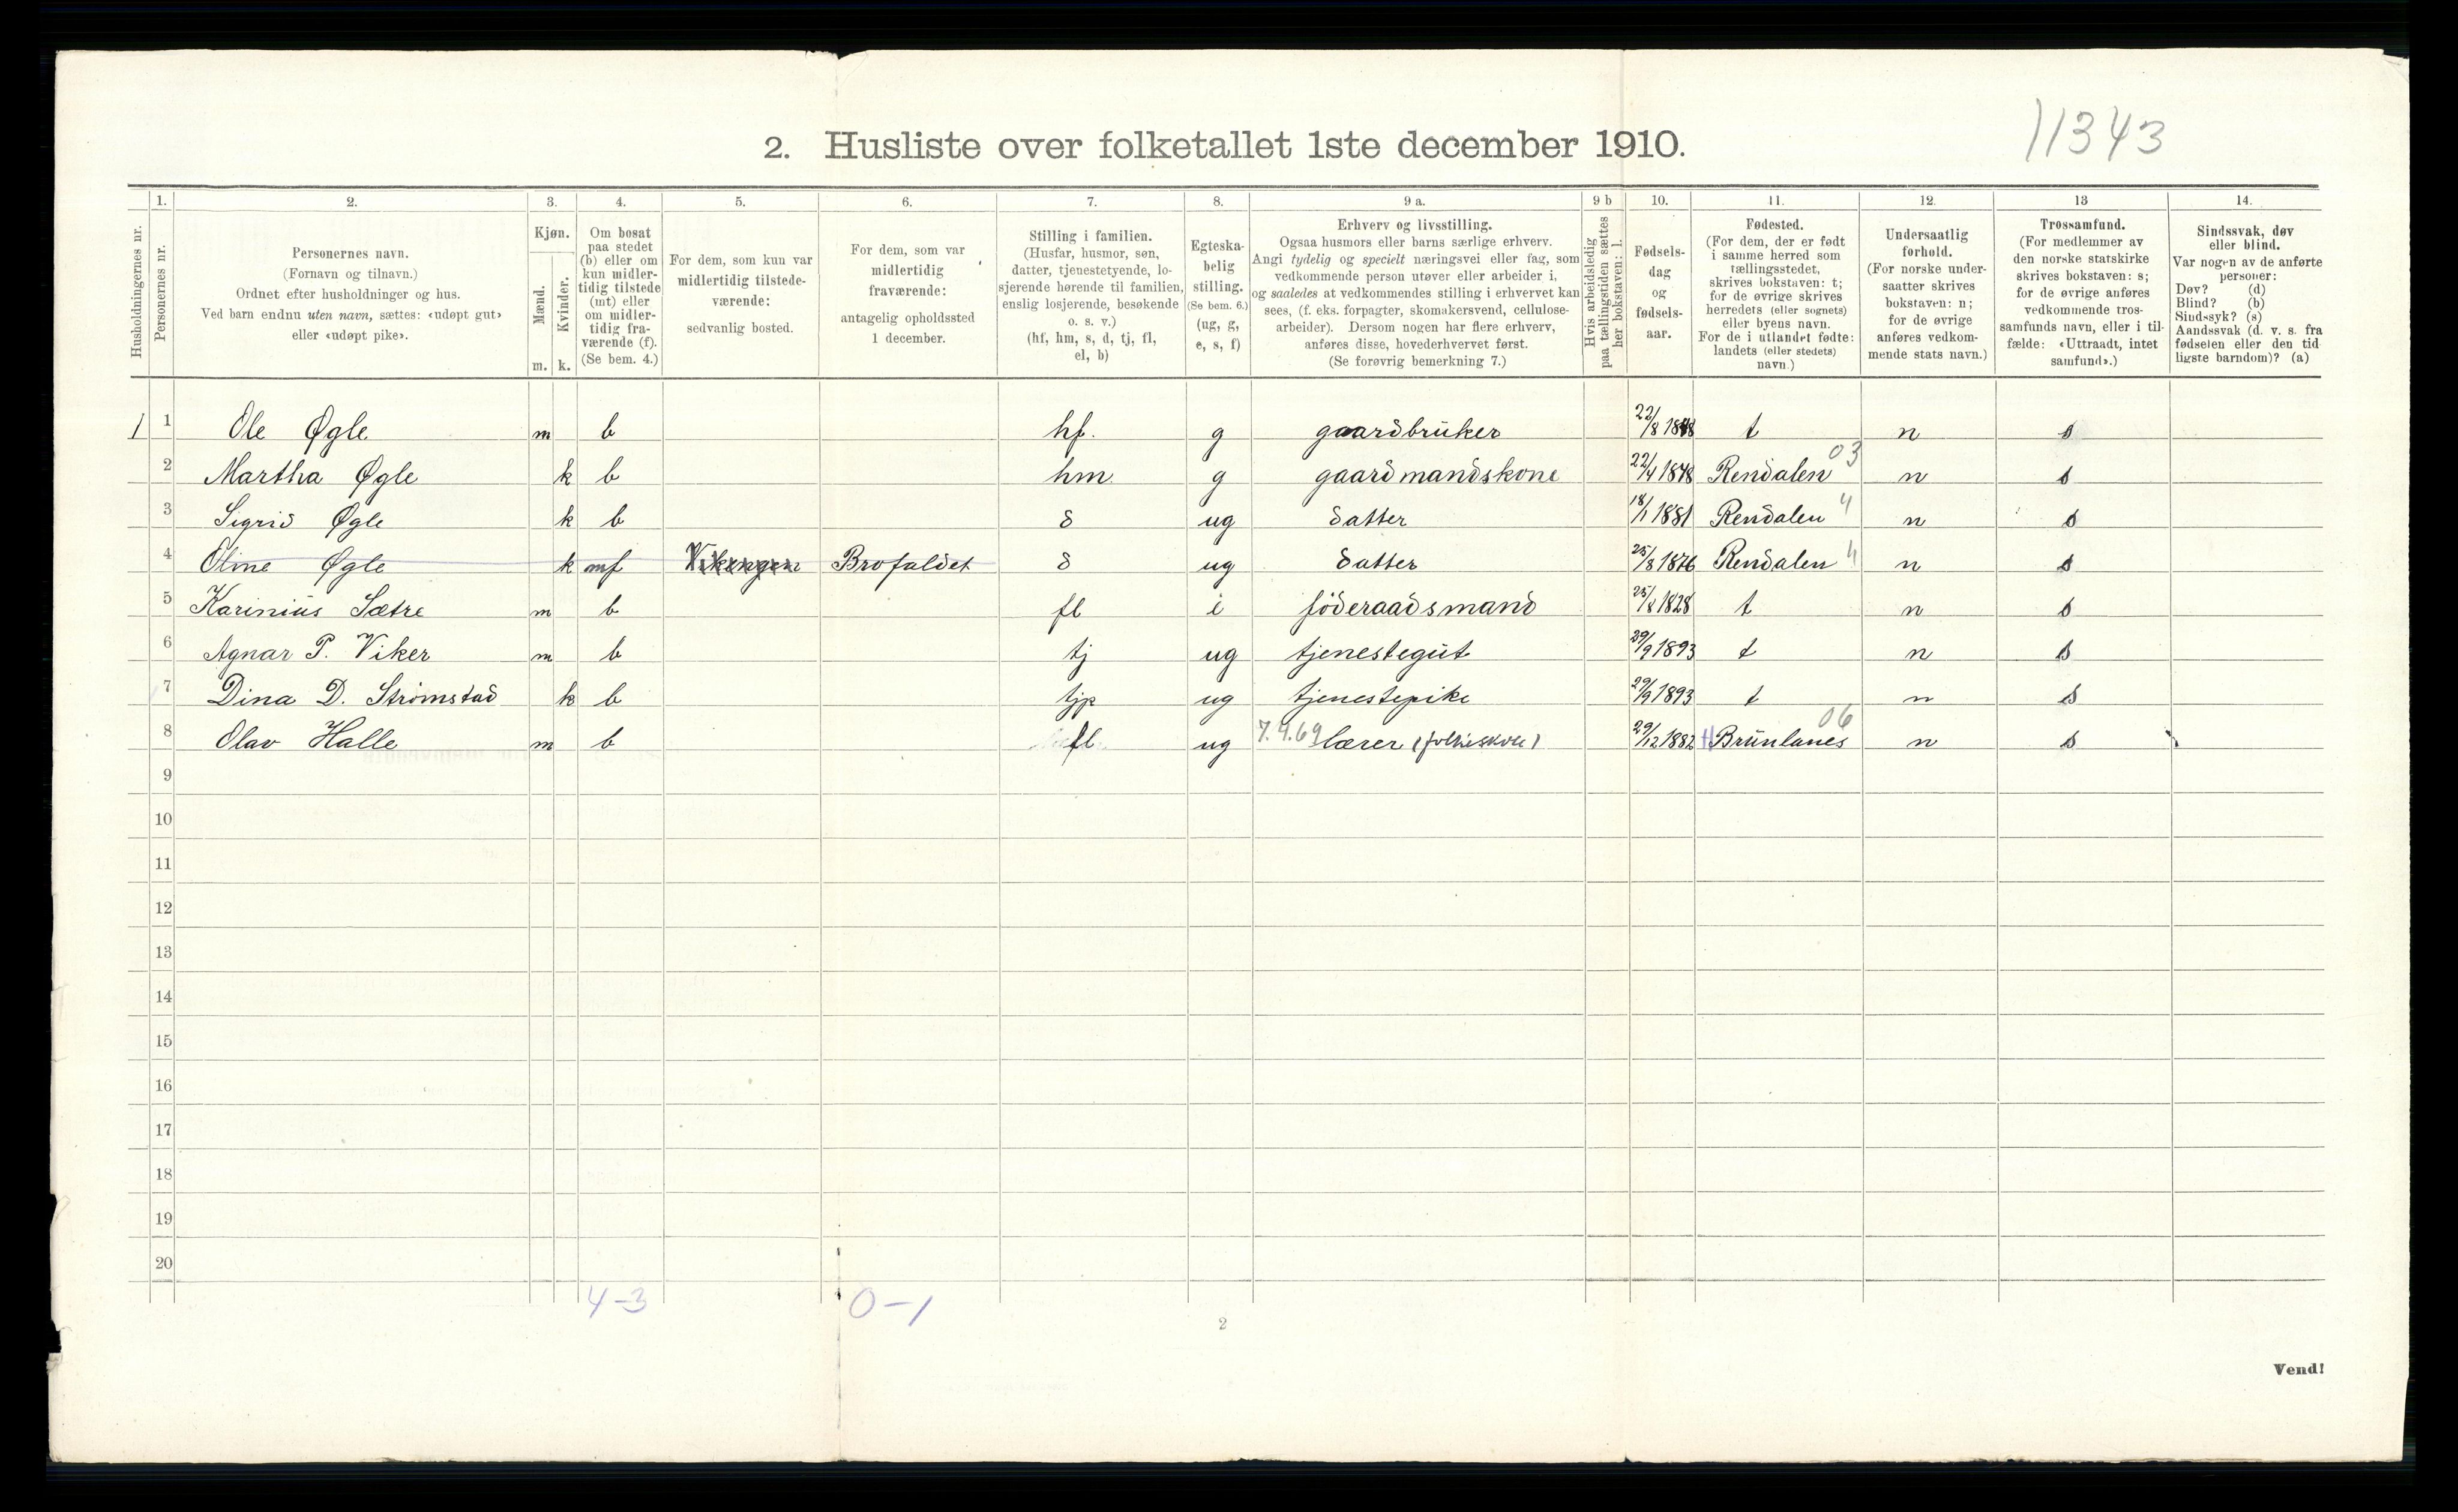 11343
2. Husliste over folketallet 1ste december 1910.
1. 2. 3. 4. 5. 6. 7. 8. 9 a. 9 b 10. 11. 12. 13 14.
Husholdningernes nr.
Personernes nr.
Personernes navn.
(Fornavn og tilnavn.)
Ordnet efter husholdninger og hus.
Ved barn endnu uten navn, sættes: «udøpt gut»
eller «udøpt pike».
Kjøn.
Mænd.
Kvinder.
m. k.
Om bosat
paa stedet
(b) eller om
kun midler-
tidig tilstede
(mt) eller
om midler-
tidig fra-
værende (f).
(Se bem. 4.)
For dem, som kun var
midlertidig tilstede-
værende:
sedvanlig bosted.
For dem, som var
midlertidig
fraværende:
antagelig opholdssted
1 december.
Stilling i familien.
(Husfar, husmor, søn,
datter, tjenestetyende, lo-
sjerende hørende til familien,
enslig losjerende, besøkende
o. s. v.)
(hf, hm, s, d, tj, fl,
el, b)
Egteska-
belig
stilling.
(Se bem. 6.)
(ug, g,
e, s, f)
Erhverv og livsstilling.
Ogsaa husmors eller barns særlige erhverv.
Angi tydelig og specielt næringsvei eller fag, som
vedkommende person utøver eller arbeider i,
og saaledes at vedkommendes stilling i erhvervet kan
sees, (f. eks. forpagter, skomakersvend, cellulose-
arbeider). Dersom nogen har flere erhverv,
anføres disse, hovederhvervet først.
(Se forøvrig bemerkning 7.)
Hvis arbeidsledig
paa tællingstiden sættes
her bokstaven: l.
Fødsels-
dag
og
fødsels-
aar.
Fødested.
(For dem, der er født
i samme herred som
tællingsstedet,
skrives bokstaven: t;
for de øvrige skrives
herredets (eller sognets)
eller byens navn.
For de i utlandet fødte:
landets (eller stedets)
navn.)
Undersaatlig
forhold.
(For norske under-
saatter skrives
bokstaven: n;
for de øvrige
anføres vedkom-
mende stats navn.)
Trossamfund.
(For medlemmer av
den norske statskirke
skrives bokstaven: s;
for de øvrige anføres
vedkommende tros-
samfunds navn, eller i til-
fælde: «Uttraadt, intet
samfund».)
Sindssvak, døv
eller blind.
Var nogen av de anførte
personer:
Døv? (d)
Blind? (b)
Sindssyk? (s)
Aandssvak (d. v. s. fra
fødselen eller den tid-
ligste barndom)? (a)
1 1 Ole Øgle m b hf. g gaardbruker 22/8 1848 t n s
2 Martha Øgle k b hm g gaardmandskone 22/4 1848 Rendalen 03 n s
3 Sigrid Øgle k b d ug datter 18/1 1881 Rendalen 4 n s
4 Oline Øgle k mf Vikengen Brofaldet d ug datter 25/8 1876 Rendalen 4 n s
5 Karinius Sætre m b fl e föderaadsmand 25/8 1828 t n s
6 Agnar P. Viker m b tj ug tjenestegut 29/9 1893 t n s
7 Dina D. Strömstad k b tjp ug tjenestepike 29/9 1893 t n s
8 Olav Halle m b fl ug 7.9.69 lærer (folkeskole) 29/12 1882 Brunlanes 06 n s
9
10
11
12
13
14
15
16
17
18
19
20
4-3 0-1
2
Vend!